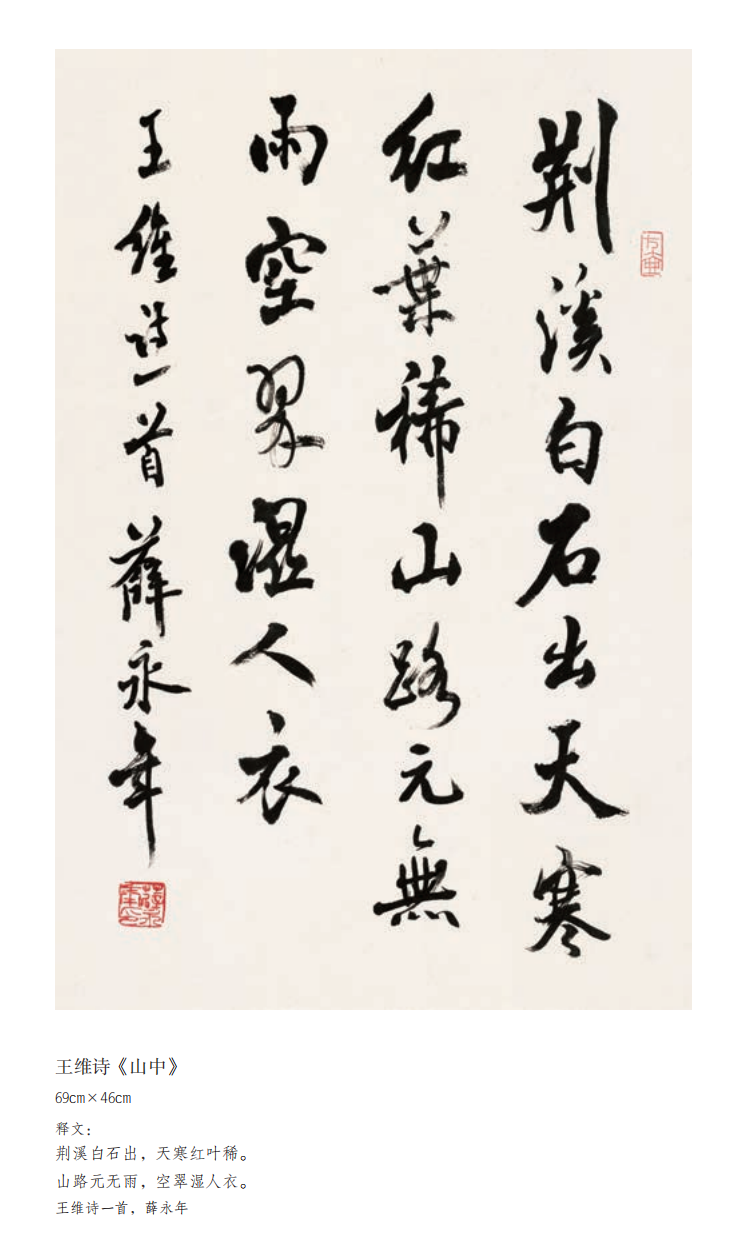 荆溪白石出天寒
红葉稀山路元無
雨空翠濕人衣
王維詩一首 薛永年
王维诗《山中》
69cm×46cm
释文：
荆溪白石出，天寒红叶稀。
山路元无雨，空翠湿人衣。
王维诗一首，薛永年